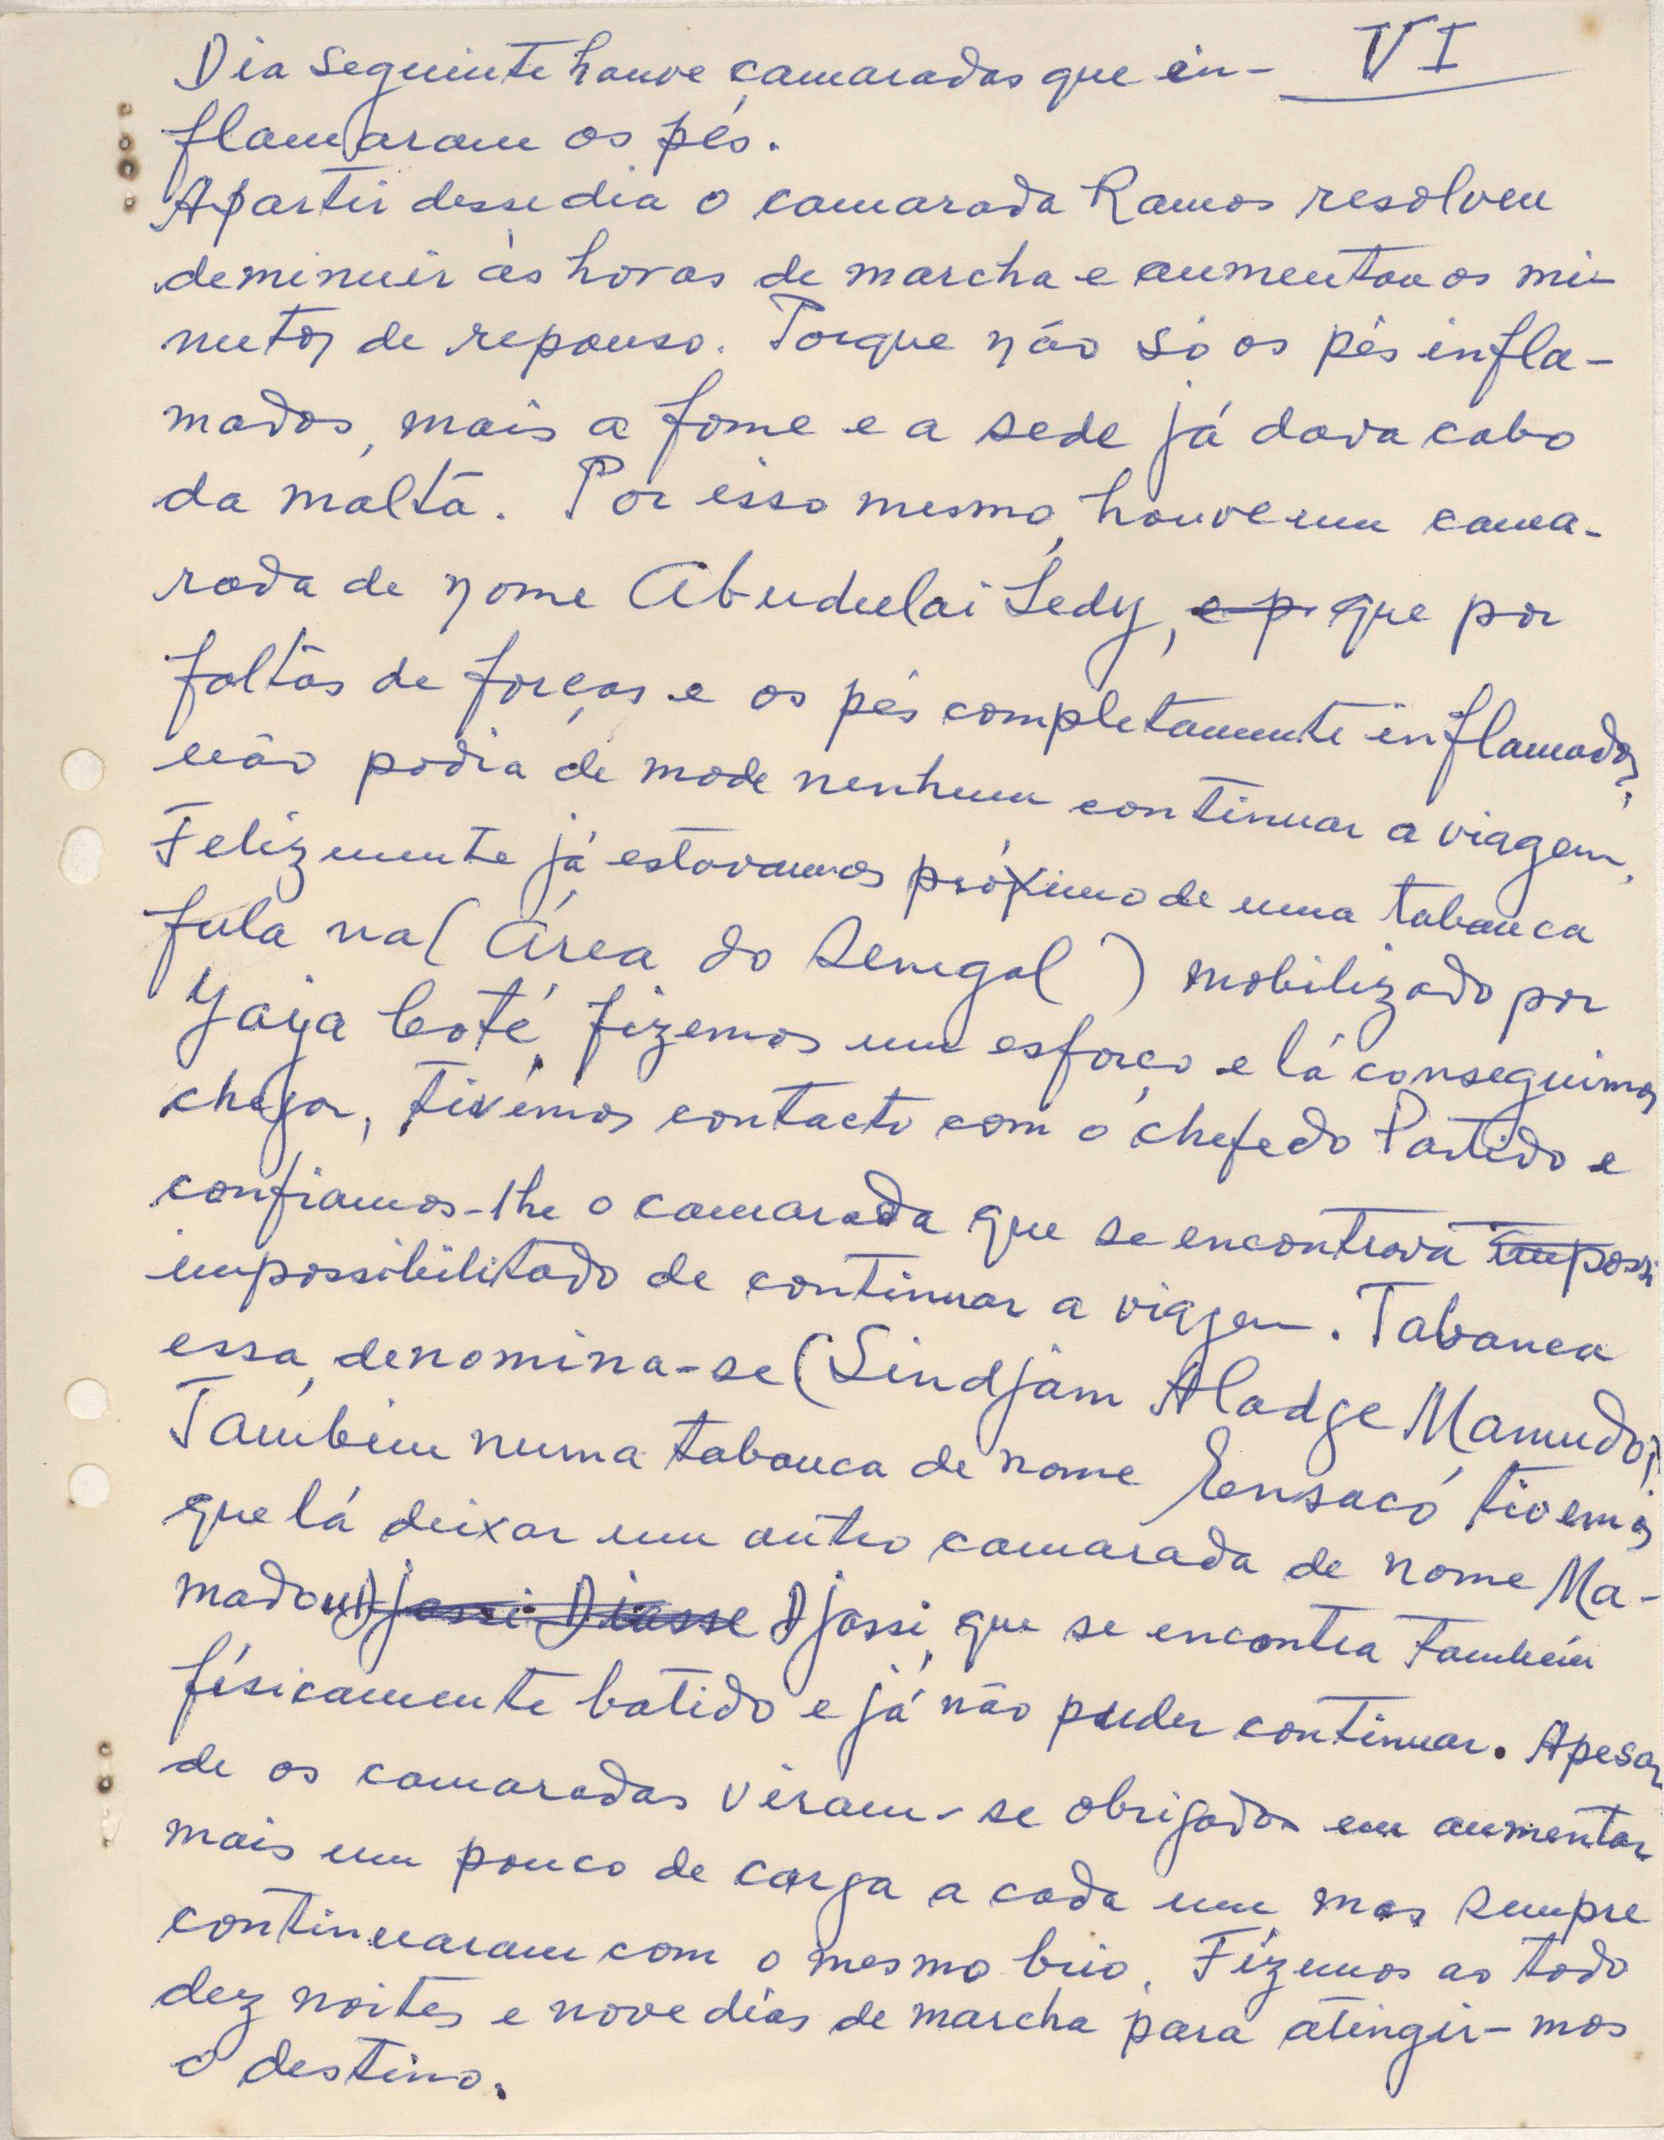 VI
Dia seguinte houve camaradas que in-
flamaram os pés.
Apartir desse dia o camarada Ramos resolveu
deminuir ás horas de marcha e aumentou os mi-
nutos de repouso. Porque não só os pés infla-
mados, mais a fome e a sede já dava cabo
da malta. Por isso mesmo, houve um cama-
rada de nome Abudulai Sedy, e p que por
faltas de forças e os pés completamente inflamados,
não podia de mode nenhum continuar a viagem,
Felizmente já estavamos próximo de uma tabanca
fula na (Área do Senegal) mobilizado por
Yaya Coté, fizemos um esforço e lá conseguimos
chegar, tivémos contacto com o chefe do Partido e
confiamos-lhe o camarada que se encontrava impossi
impossibilitado de continuar a viagem. Tabanca
essa, denomina-se (Sindjam Aladge Mamudo),
Também numa tabanca de nome Ensacó tivemos
que lá deixar um outro camarada de nome Ma-
madou Djassi Diasse Djassi, que se encontra também
físicamente batido e já não puder continuar. Apesar
de os camaradas viram-se obrigados em aumentar
mais um pouco de carga a cada um, mas sempre
continuaram com o mesmo brio. Fizemos ao todo
dez noites e nove dias de marcha para atingir-mos
o destino.